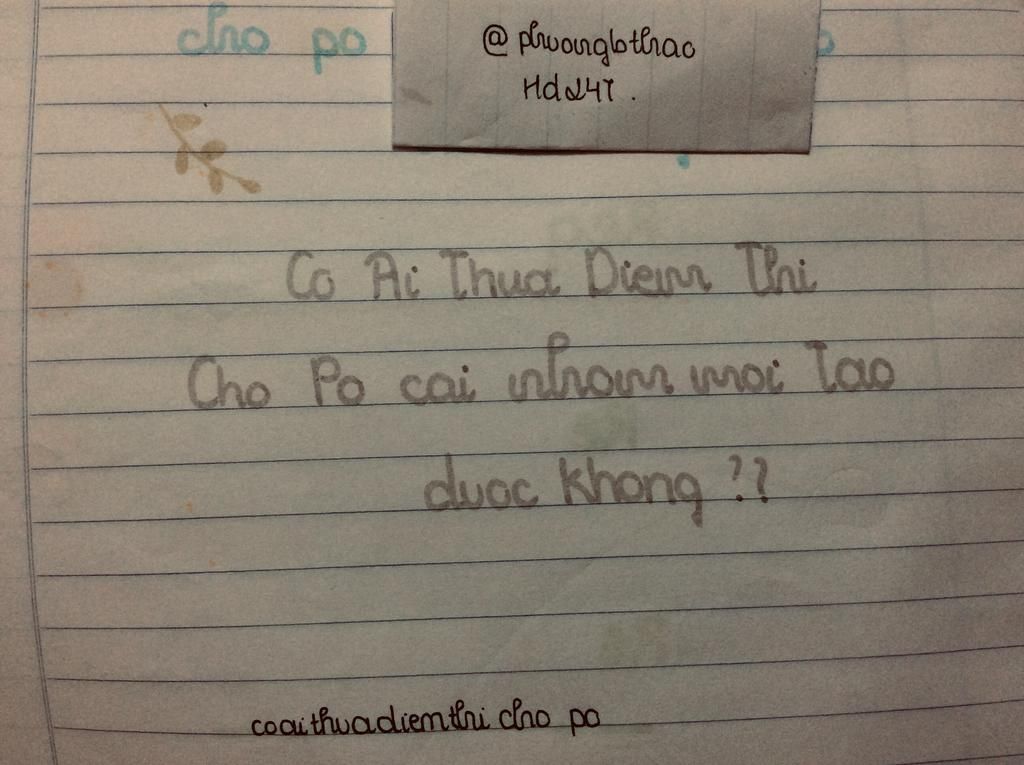 cho po
@ phuongbthao
Hd247.
Co Ai Thua Diem Thi
Cho Po cai nhom moi Tao
duoc khong ??
coaithuadiemthi cho po